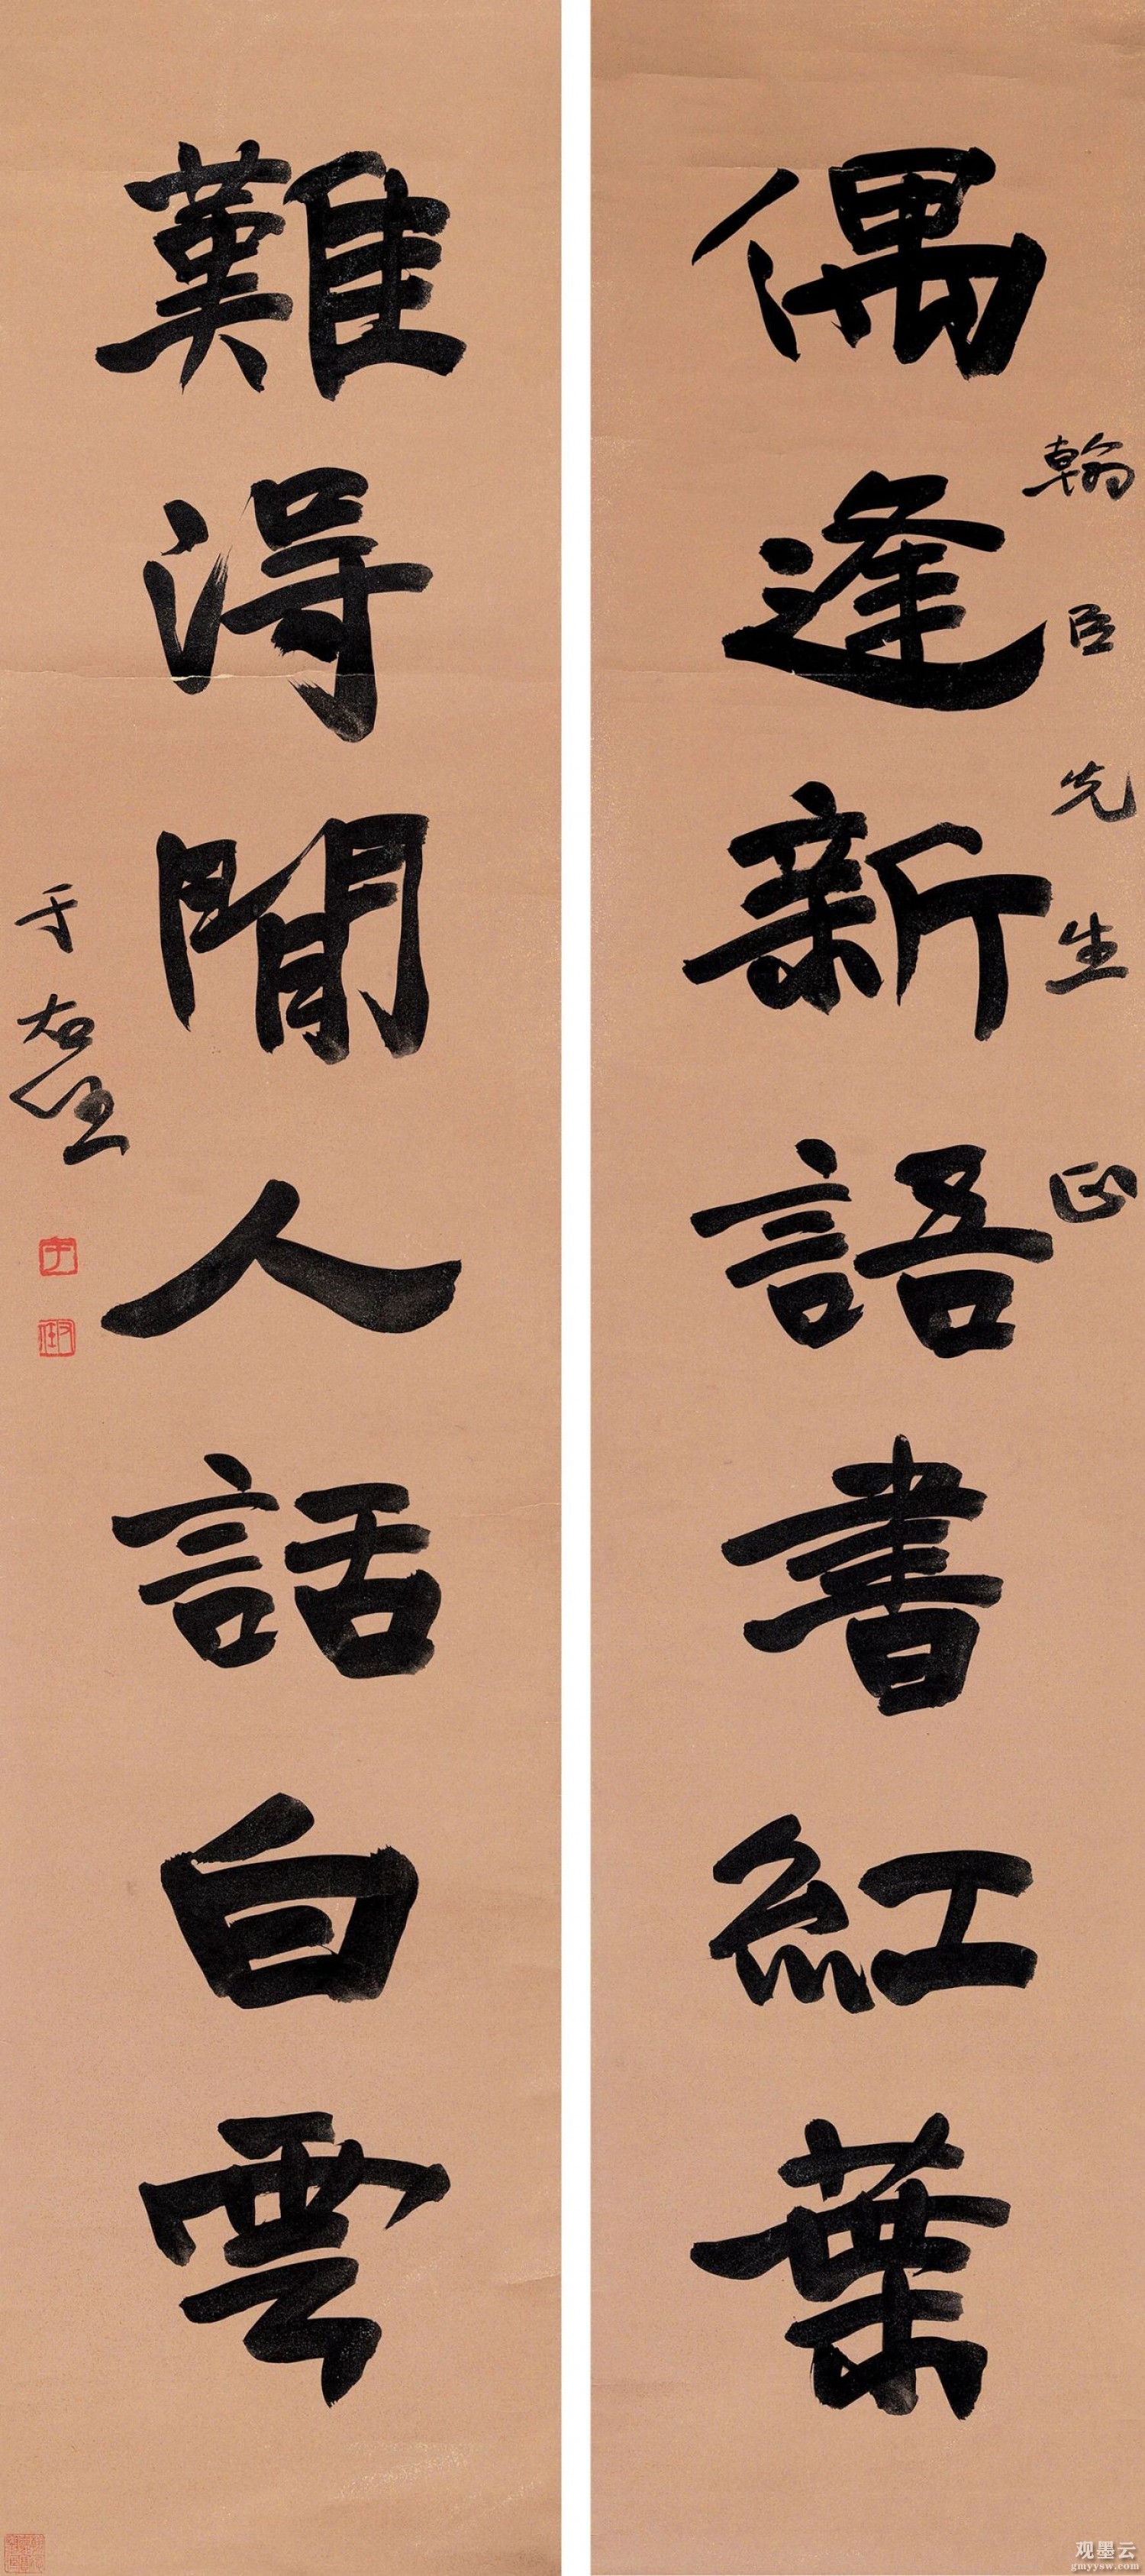 偶逢新語書紅葉
翰臣先生正
難得閒人話白雲
于右任
观墨云
gmyysw.com